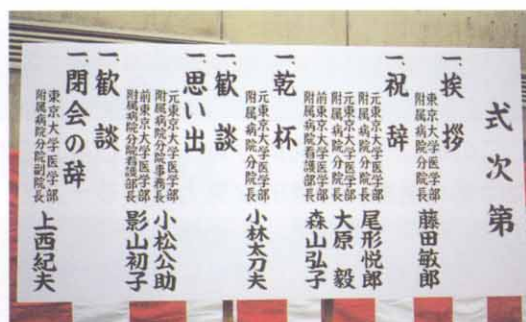 式次第
一、挨拶
東京大学医学部
附属病院分院長 藤田敏郎
一、祝辞
元東京大学医学部
附属病院分院長 尾形悦郎
元東京大学医学部
附属病院分院長 大原 毅
前東京大学医学部
附属病院分院看護部長 森山弘子
一、乾杯
元東京大学医学部
附属病院分院長 小林太刀夫
一、歓談
一、思い出
元東京大学医学部
附属病院分院事務長 小松公助
前東京大学医学部
附属病院分院看護部長 影山初子
一、歓談
一、閉会の辞
東京大学医学部
附属病院分院副院長 上西紀夫